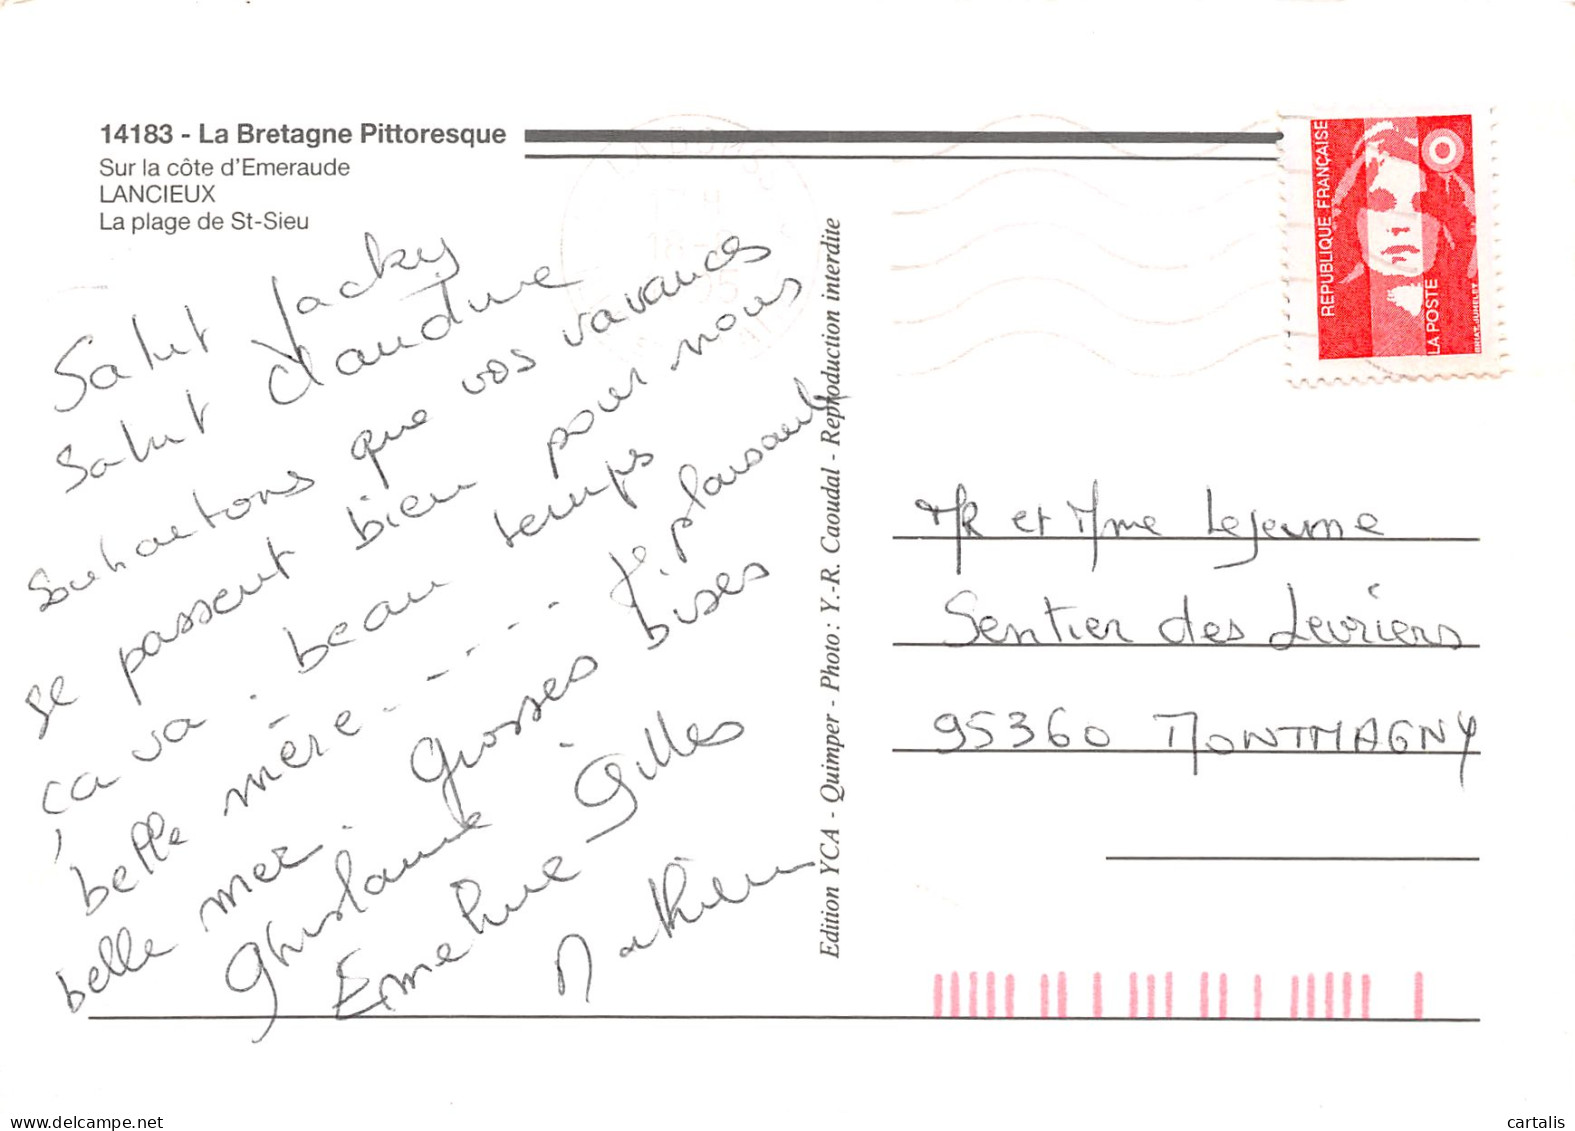 14183 - La Bretagne Pittoresque
Sur la côte d'Emeraude
LANCIEUX
La plage de St-Sieu
Salut Jacky
Salut Claudine
Souhaitons que vos vacances
se passent bien pour nous
ça va. beau temps
belle mère - - - - - - - je plaisante
belle mer. grosses bises
Ghislaine - Gilles
Emeline
Mathieu
Edition YCA - Quimper - Photo : Y.-R. Caoudal - Reproduction interdite
REPUBLIQUE FRANÇAISE
LA POSTE
BRIAT-JUMELET
MR et Mme Lejeune
Sentier des Levriers
95360 MONTMAGNY
cartalis